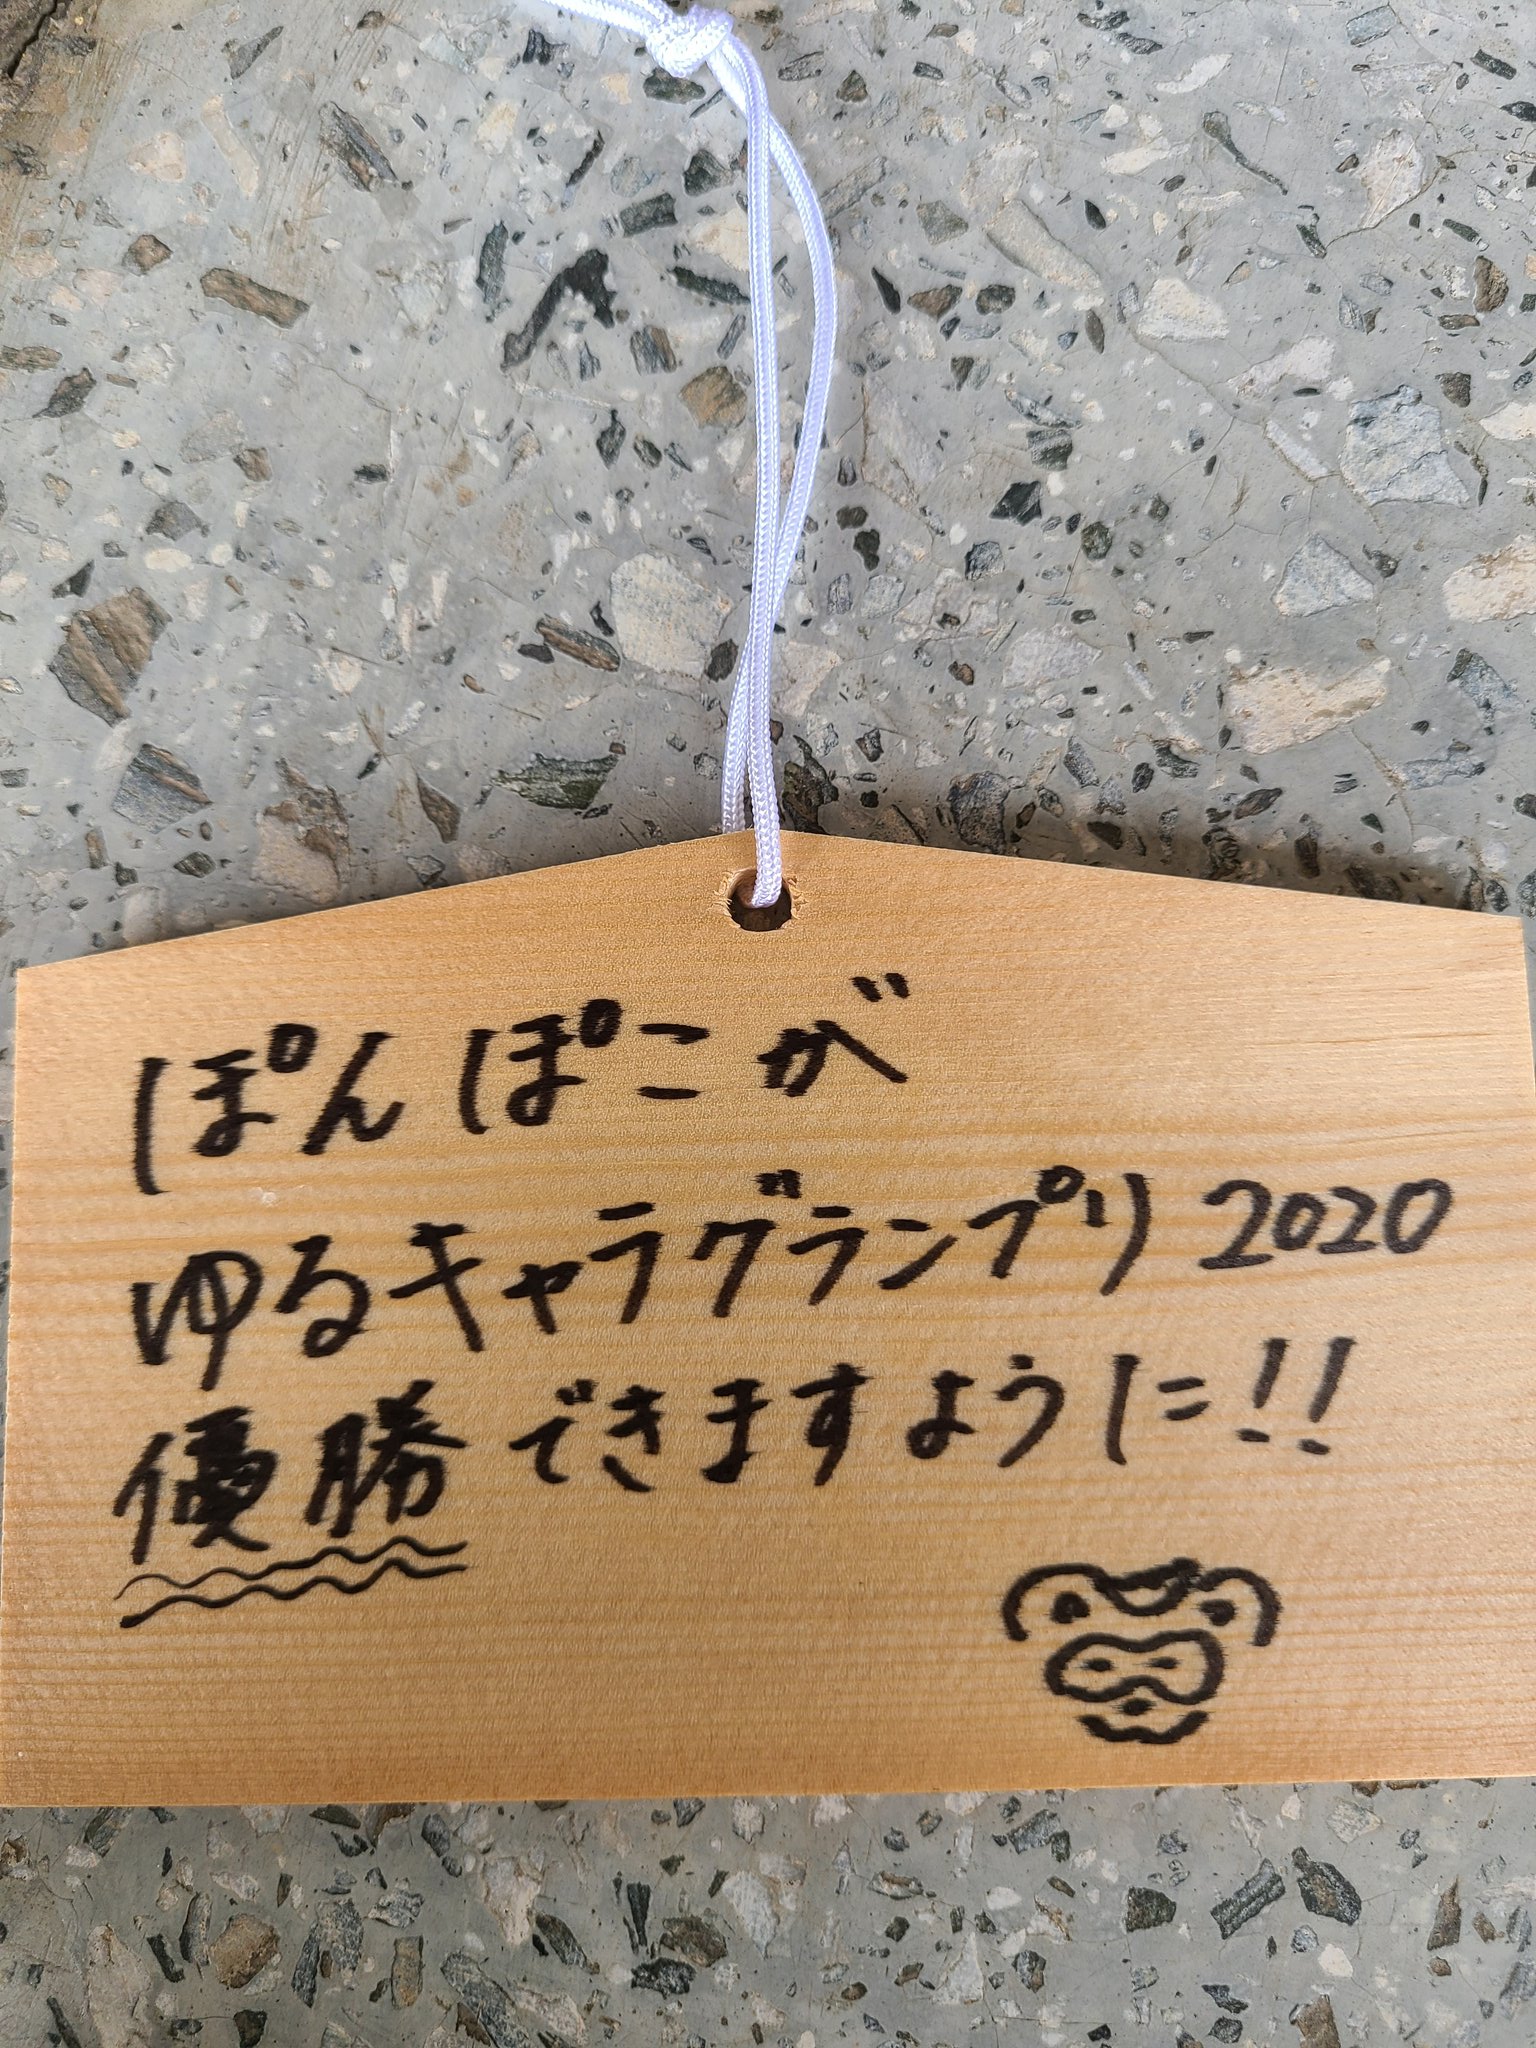 ぽんぽこが
ゆるキャラグランプリ2020
優勝できますように!!